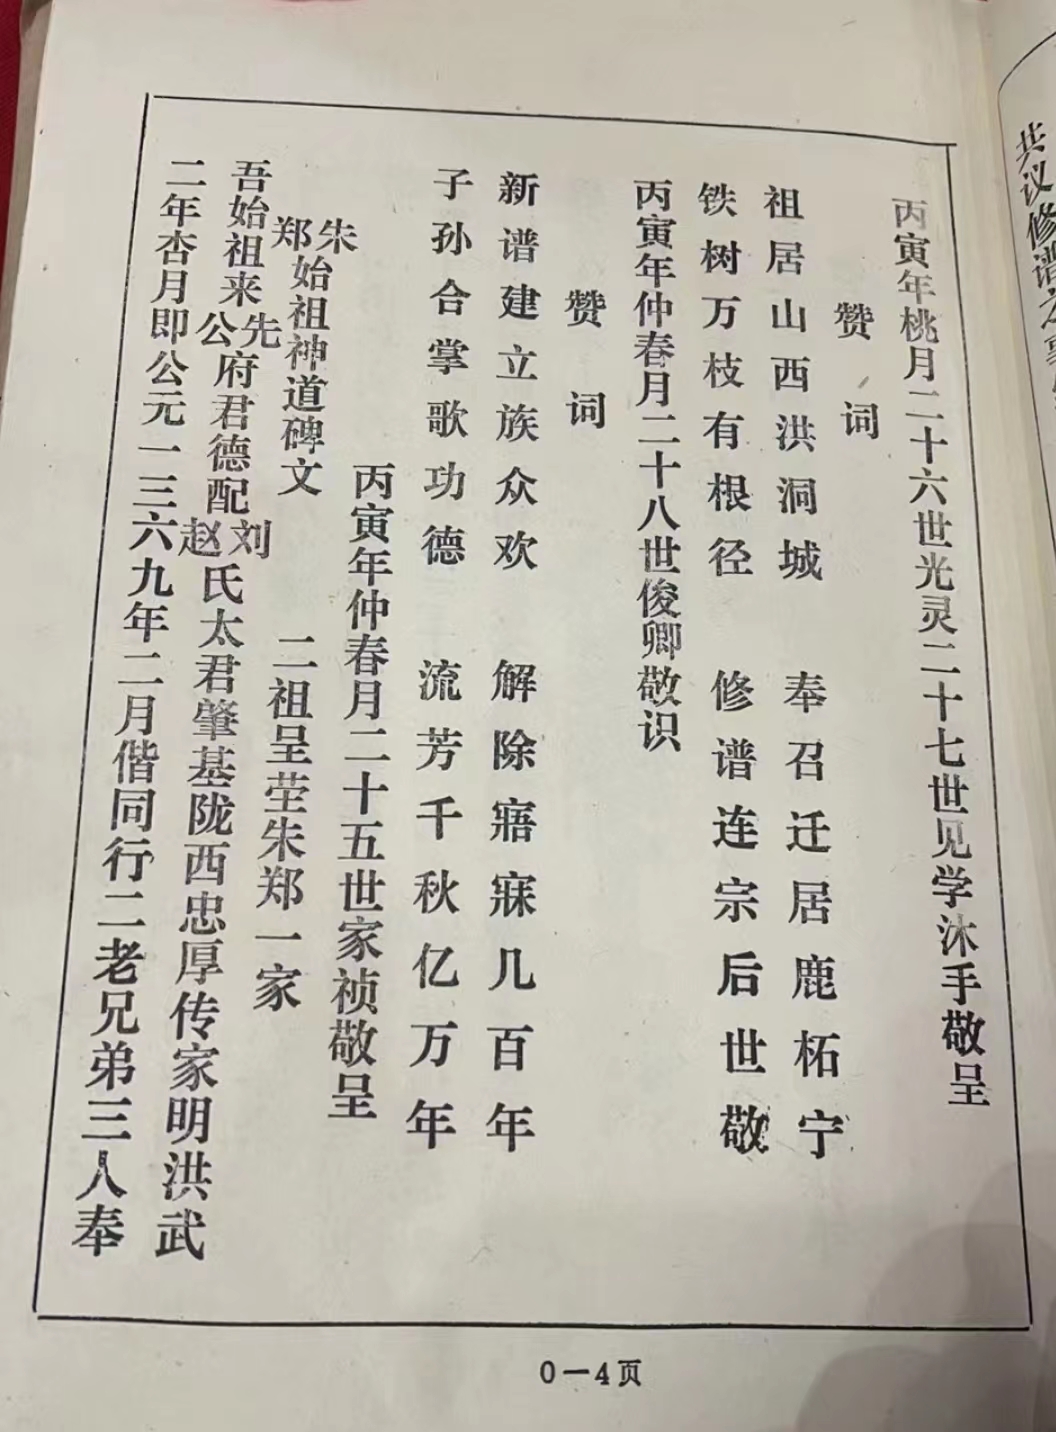 丙寅年桃月二十六世光灵二十七世见学沐手敬呈
赞词
祖居山西洪洞城　奉召迁居鹿柘宁
铁树万枝有根径　修谱连宗后世敬
丙寅年仲春月二十八世俊卿敬识
赞词
新谱建立族众欢　解除寤寐几百年
子孙合掌歌功德　流芳千秋亿万年
丙寅年仲春月二十五世家祯敬呈
朱郑始祖神道碑文　二祖呈茔朱郑一家
吾始祖来先公府君德配刘赵氏太君肇基陇西忠厚传家明洪武
二年杏月即公元一三六九年二月偕同行二老兄弟三人奉
共议修谱之事
0—4页